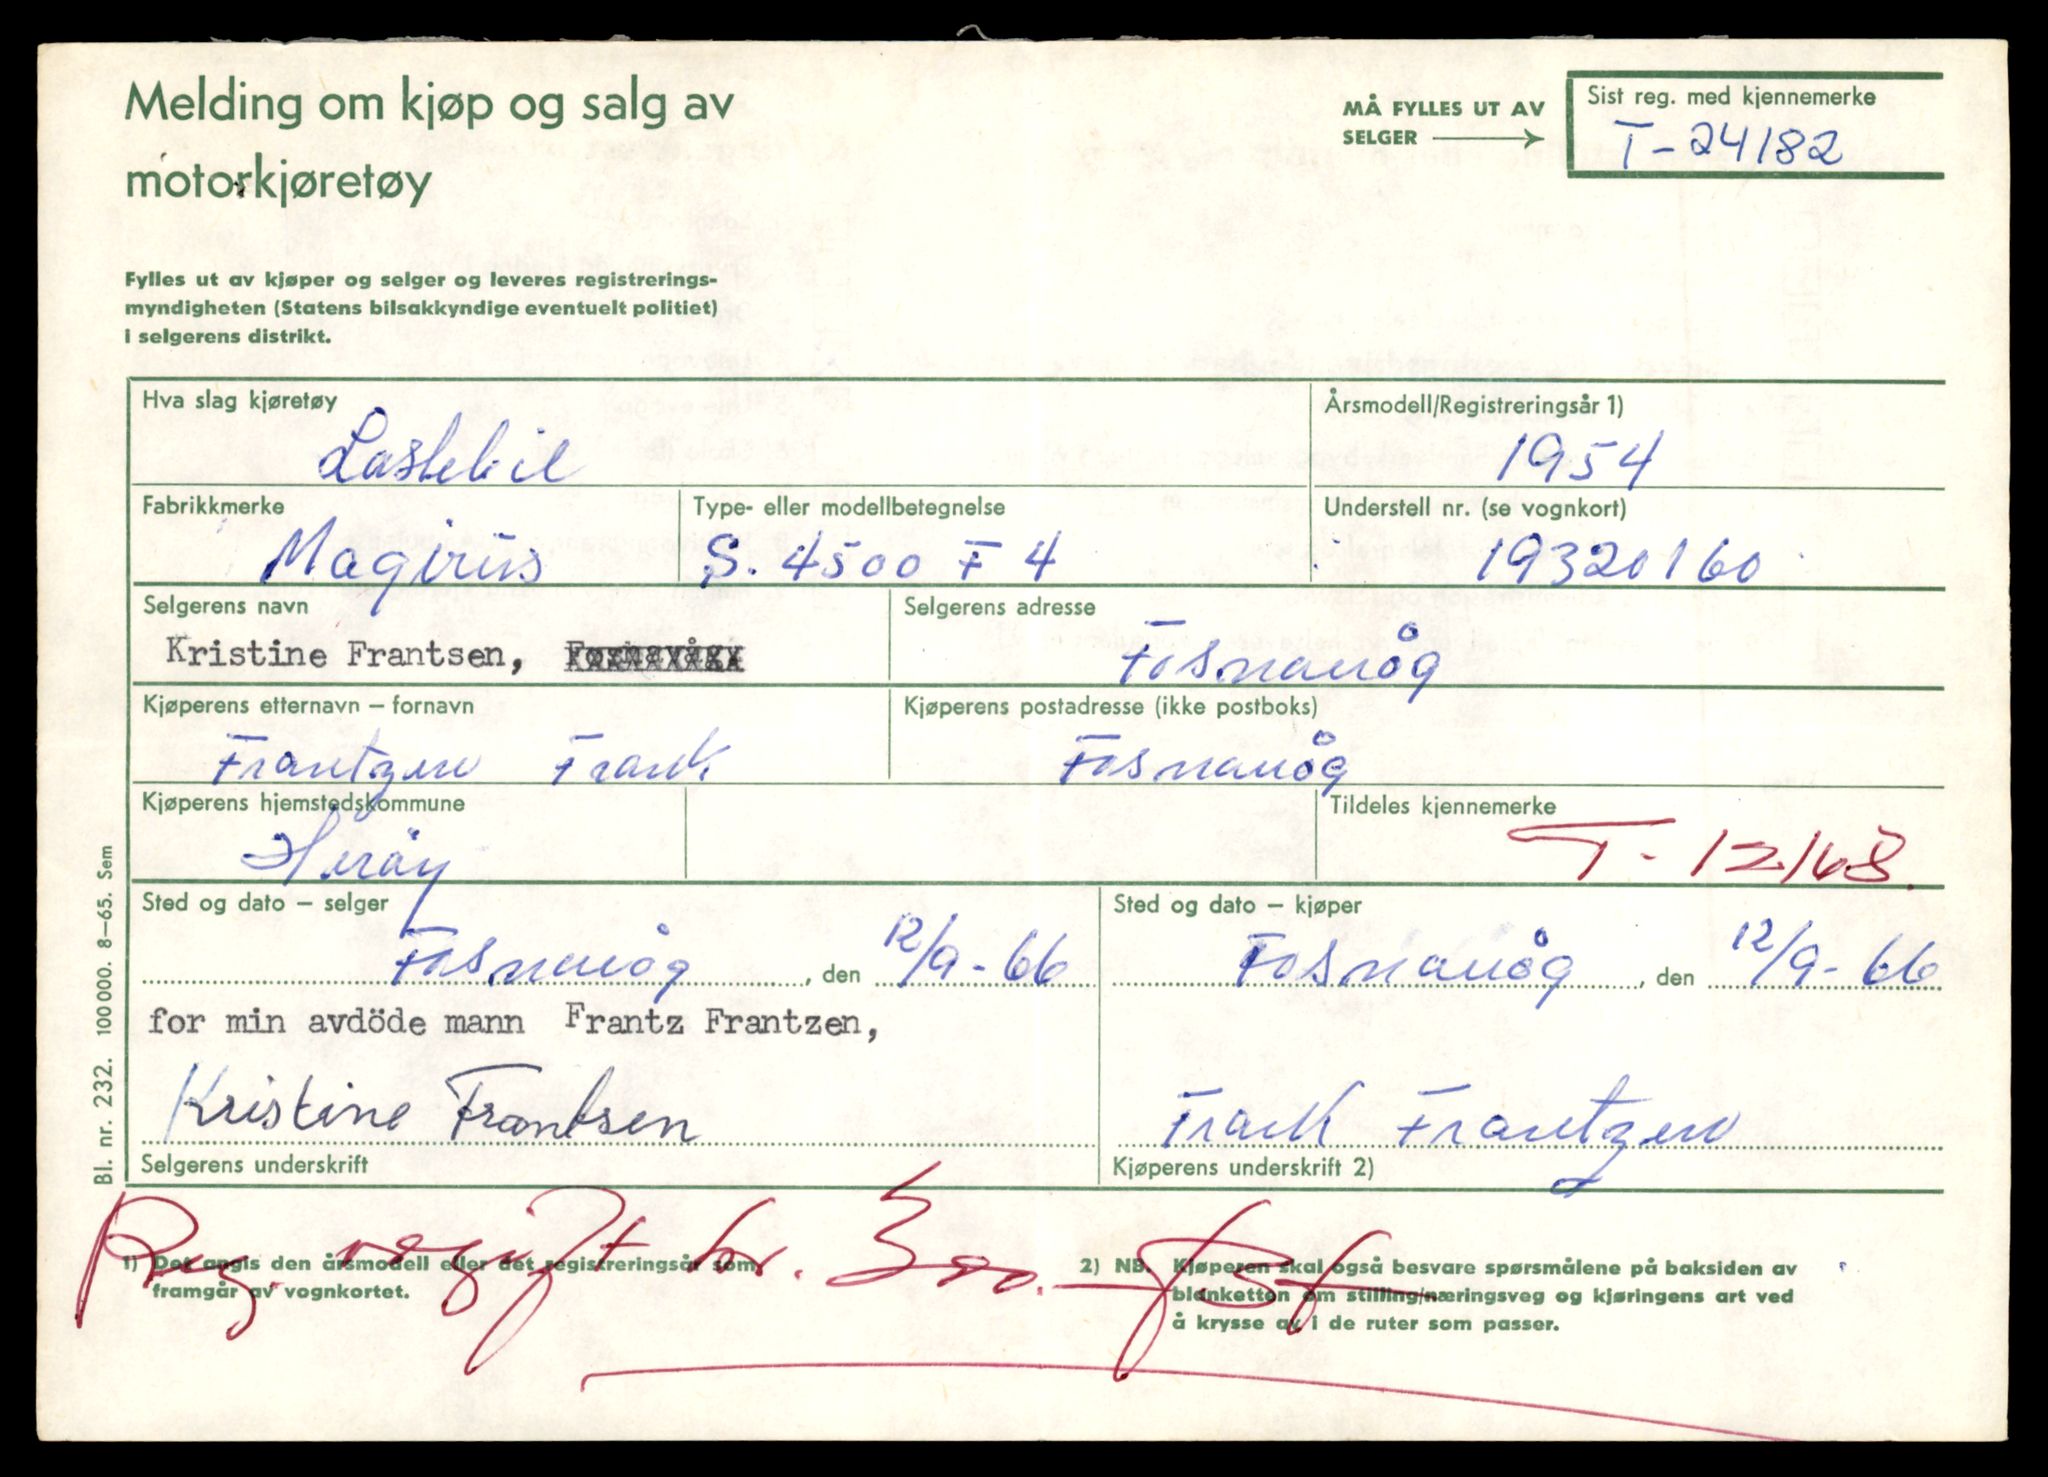 Melding om kjøp og salg av
motorkjøretøy
MÅ FYLLES UT AV
SELGER
Sist reg. med kjennemerke
T-24182
Fylles ut av kjøper og selger og leveres registrerings-
myndigheten (Statens bilsakkyndige eventuelt politiet)
i selgerens distrikt.
Hva slag kjøretøy
Lastebil
Årsmodell/Registreringsår 1)
1954
Fabrikkmerke
Magirus
Type- eller modellbetegnelse
S. 4500 F 4
Understell nr. (se vognkort)
19320160
Selgerens navn
Kristine Frantsen,
Selgerens adresse
Fosnavåg
Kjøperens etternavn – fornavn
Frantzen Frank
Kjøperens postadresse (ikke postboks)
Fosnavåg
Kjøperens hjemstedskommune
Herøy
Tildeles kjennemerke
T-12168.
Sted og dato – selger
Fosnavåg, den 12/9-66
Sted og dato – kjøper
Fosnavåg, den 12/9-66
for min avdöde mann Frantz Frantzen,
Kristine Frantsen
Frank Frantzen
Selgerens underskrift
Kjøperens underskrift 2)
Reg. avgift kr. 300.-
1) Det angis den årsmodell eller det registreringsår som
framgår av vognkortet.
2) NB. Kjøperen skal også besvare spørsmålene på baksiden av
blanketten om stilling/næringsveg og kjøringens art ved
å krysse av i de ruter som passer.
Bl. nr. 232. 100 000. 8–65. Sem